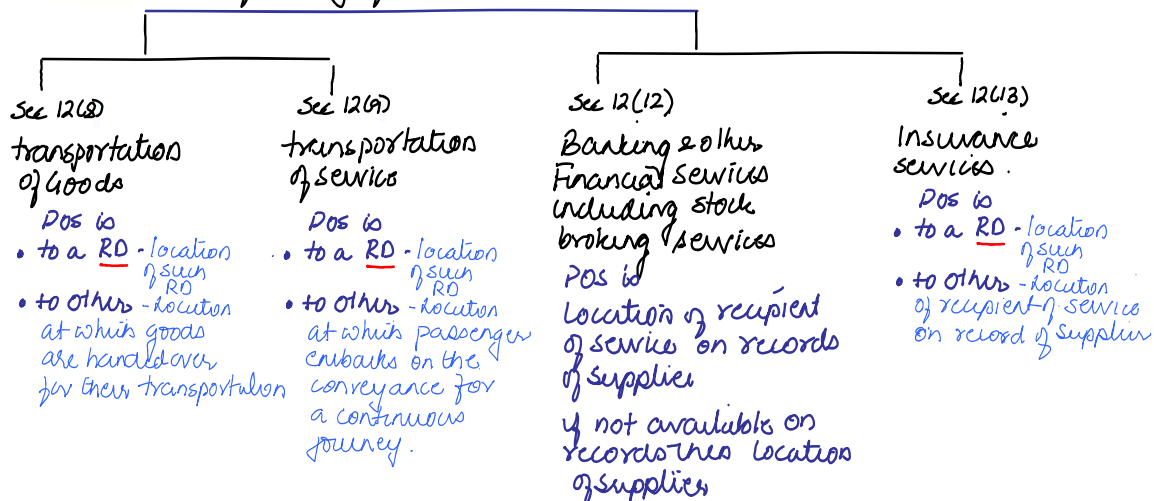 Sec 12(8)
transportation
of Goods
POS is
• to a RD - location
of such
RD
• to others - Location
at which goods
are handed over
for their transportation
Sec 12(9)
transportation
of service
POS is
• to a RD - location
of such
RD
• to others - Location
at which passenger
embarks on the
conveyance for
a continuous
journey.
Sec 12(12)
Banking & other
Financial services
including stock
broking services
POS is
Location of recipient
of service on records
of supplier
if not available on
records then location
of supplier
Sec 12(13)
Insurance
services.
POS is
• to a RD - location
of such
RD
• to others - Location
of recipient of service
on record of supplier